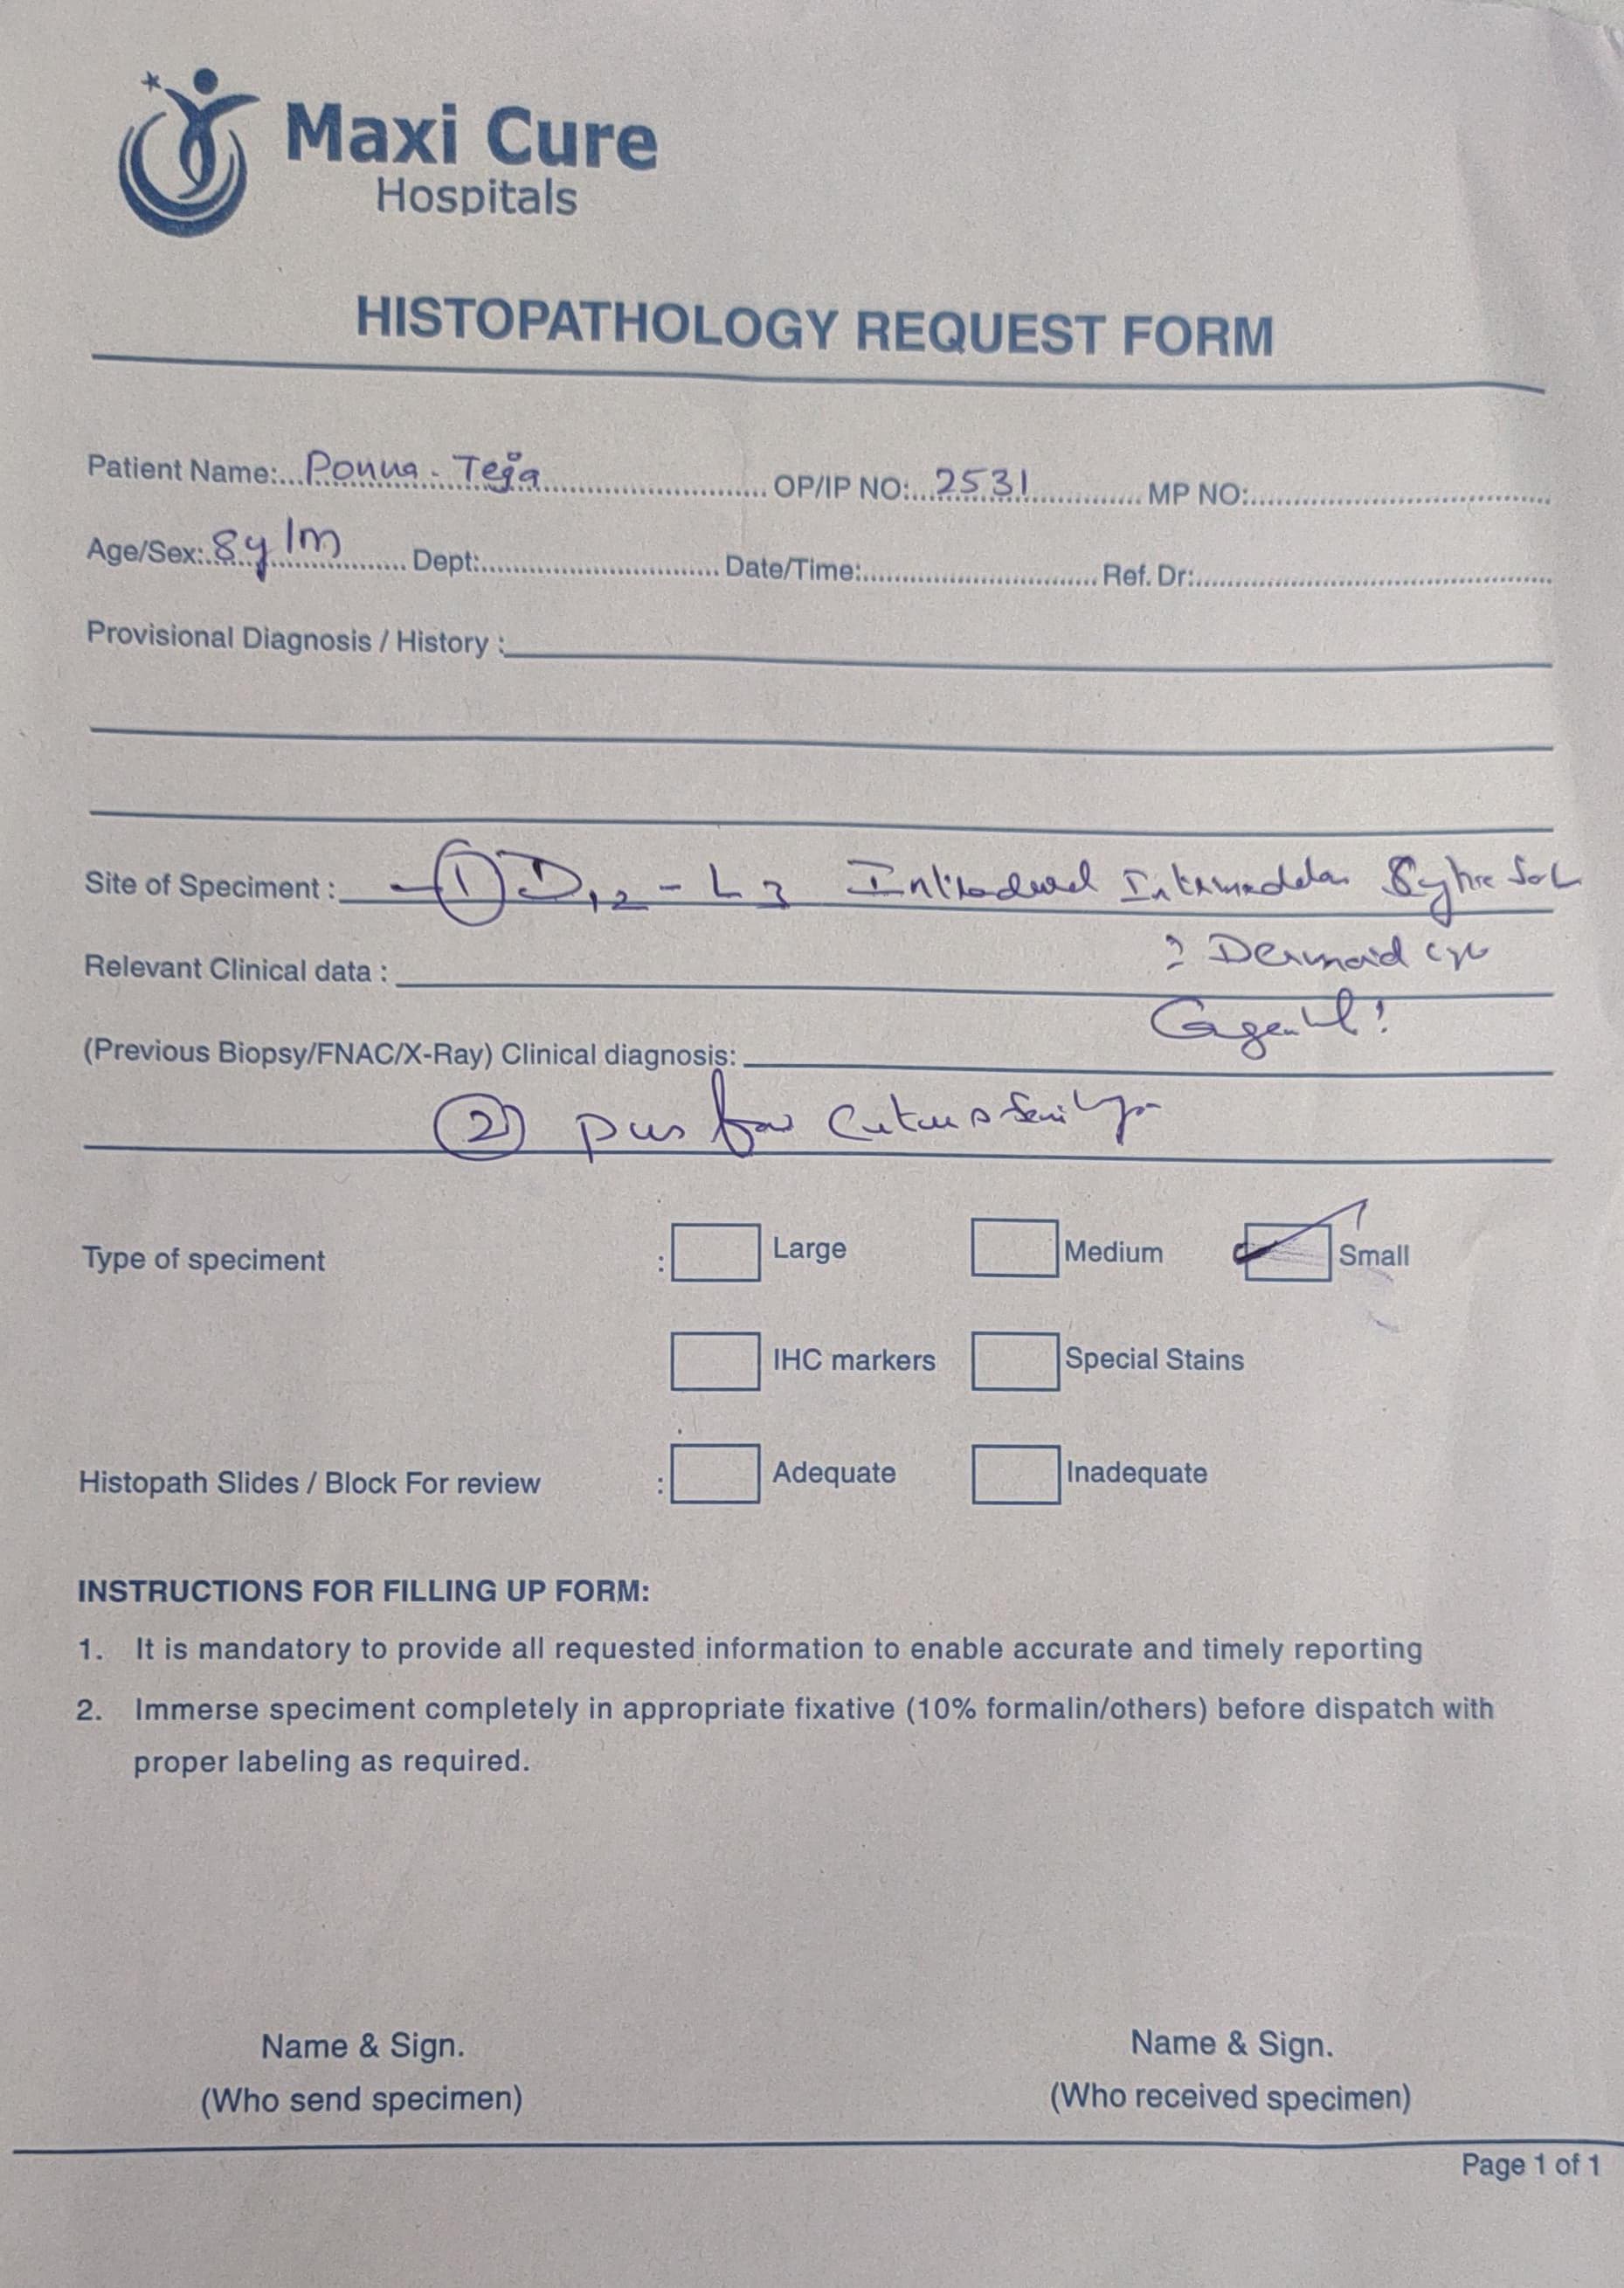 Maxi Cure
Hospitals
HISTOPATHOLOGY REQUEST FORM
Patient Name:... Ponna. Teja ... OP/IP NO:... 2531 ... MP NO:...
Age/Sex:.. 8y/m ... Dept:... Date/Time:... Ref. Dr:...
Provisional Diagnosis / History :
Site of Speciment : 1 D12 - L3 Intradural
: Dermoid
Relevant Clinical data :
(Previous Biopsy/FNAC/X-Ray) Clinical diagnosis:
2 pus for
Type of speciment : Large Medium Small
IHC markers Special Stains
Histopath Slides / Block For review : Adequate Inadequate
INSTRUCTIONS FOR FILLING UP FORM:
1. It is mandatory to provide all requested information to enable accurate and timely reporting
2. Immerse speciment completely in appropriate fixative (10% formalin/others) before dispatch with
proper labeling as required.
Name & Sign. Name & Sign.
(Who send specimen) (Who received specimen)
Page 1 of 1